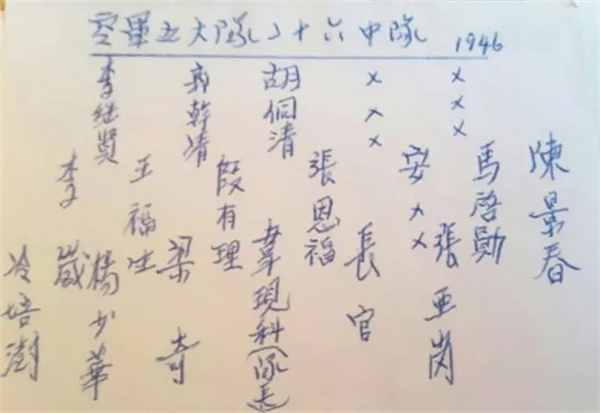 空軍五大隊二十六中隊 1946
李继賢
郭幹清
胡侗清
×××
×××
李崴
王福生
段有理
張恩福
安××
馬啓勛
陳景春
冷培澍
楊少華
梁奇
韋現科(隊長)
長官
張亜崗